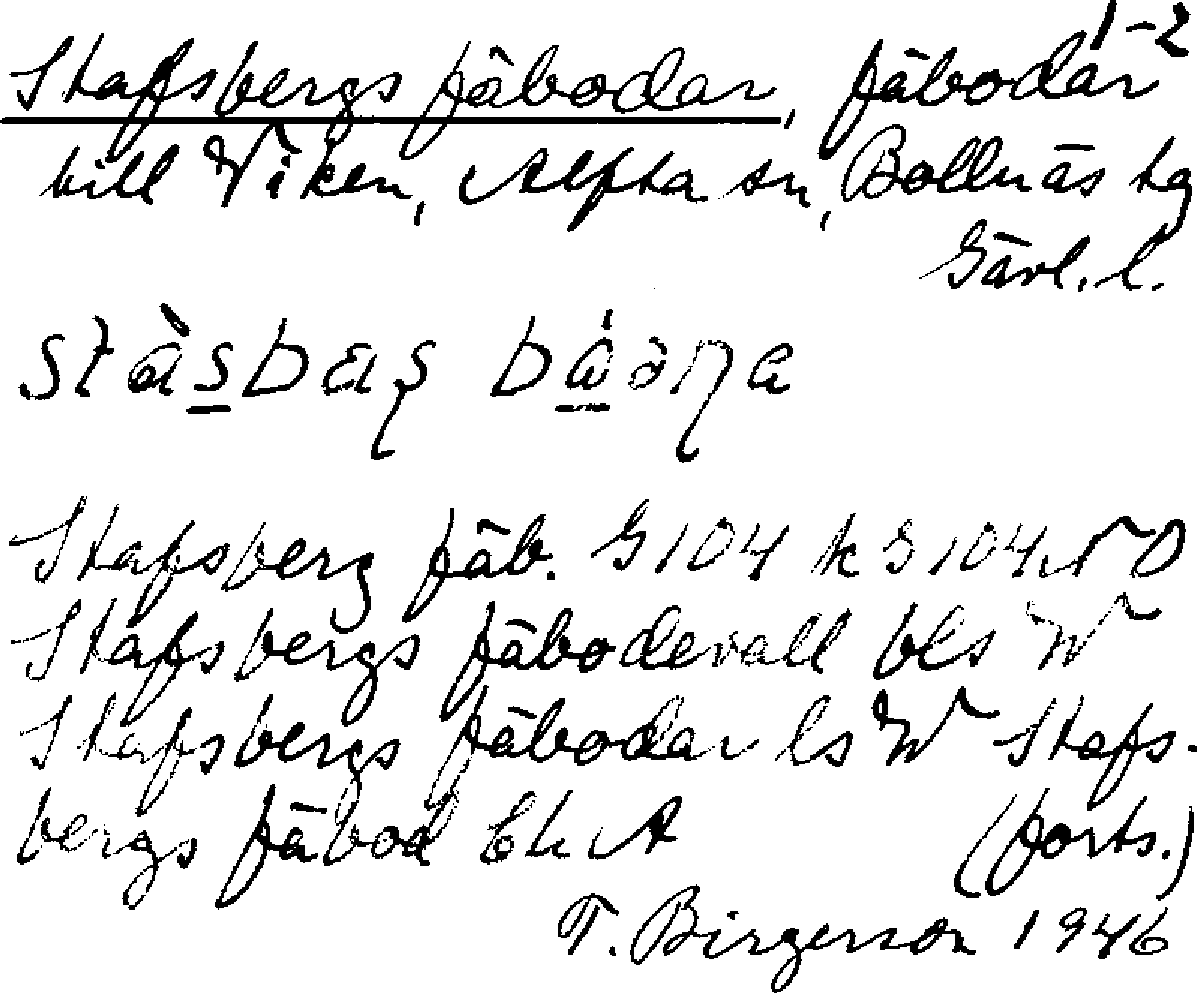 1-2
Stafsbergs fäbodar, fäbodar
till Viken, Alfta sn, Bollnäs tg
Gävl. l.
Stafsberg fäb. G104 k G104 NO
Stafsbergs fäbodevall bls W
Stafsbergs fäbodar ls W Stafs-
bergs fäbod Ek A (forts.)
T. Birgerson 1946